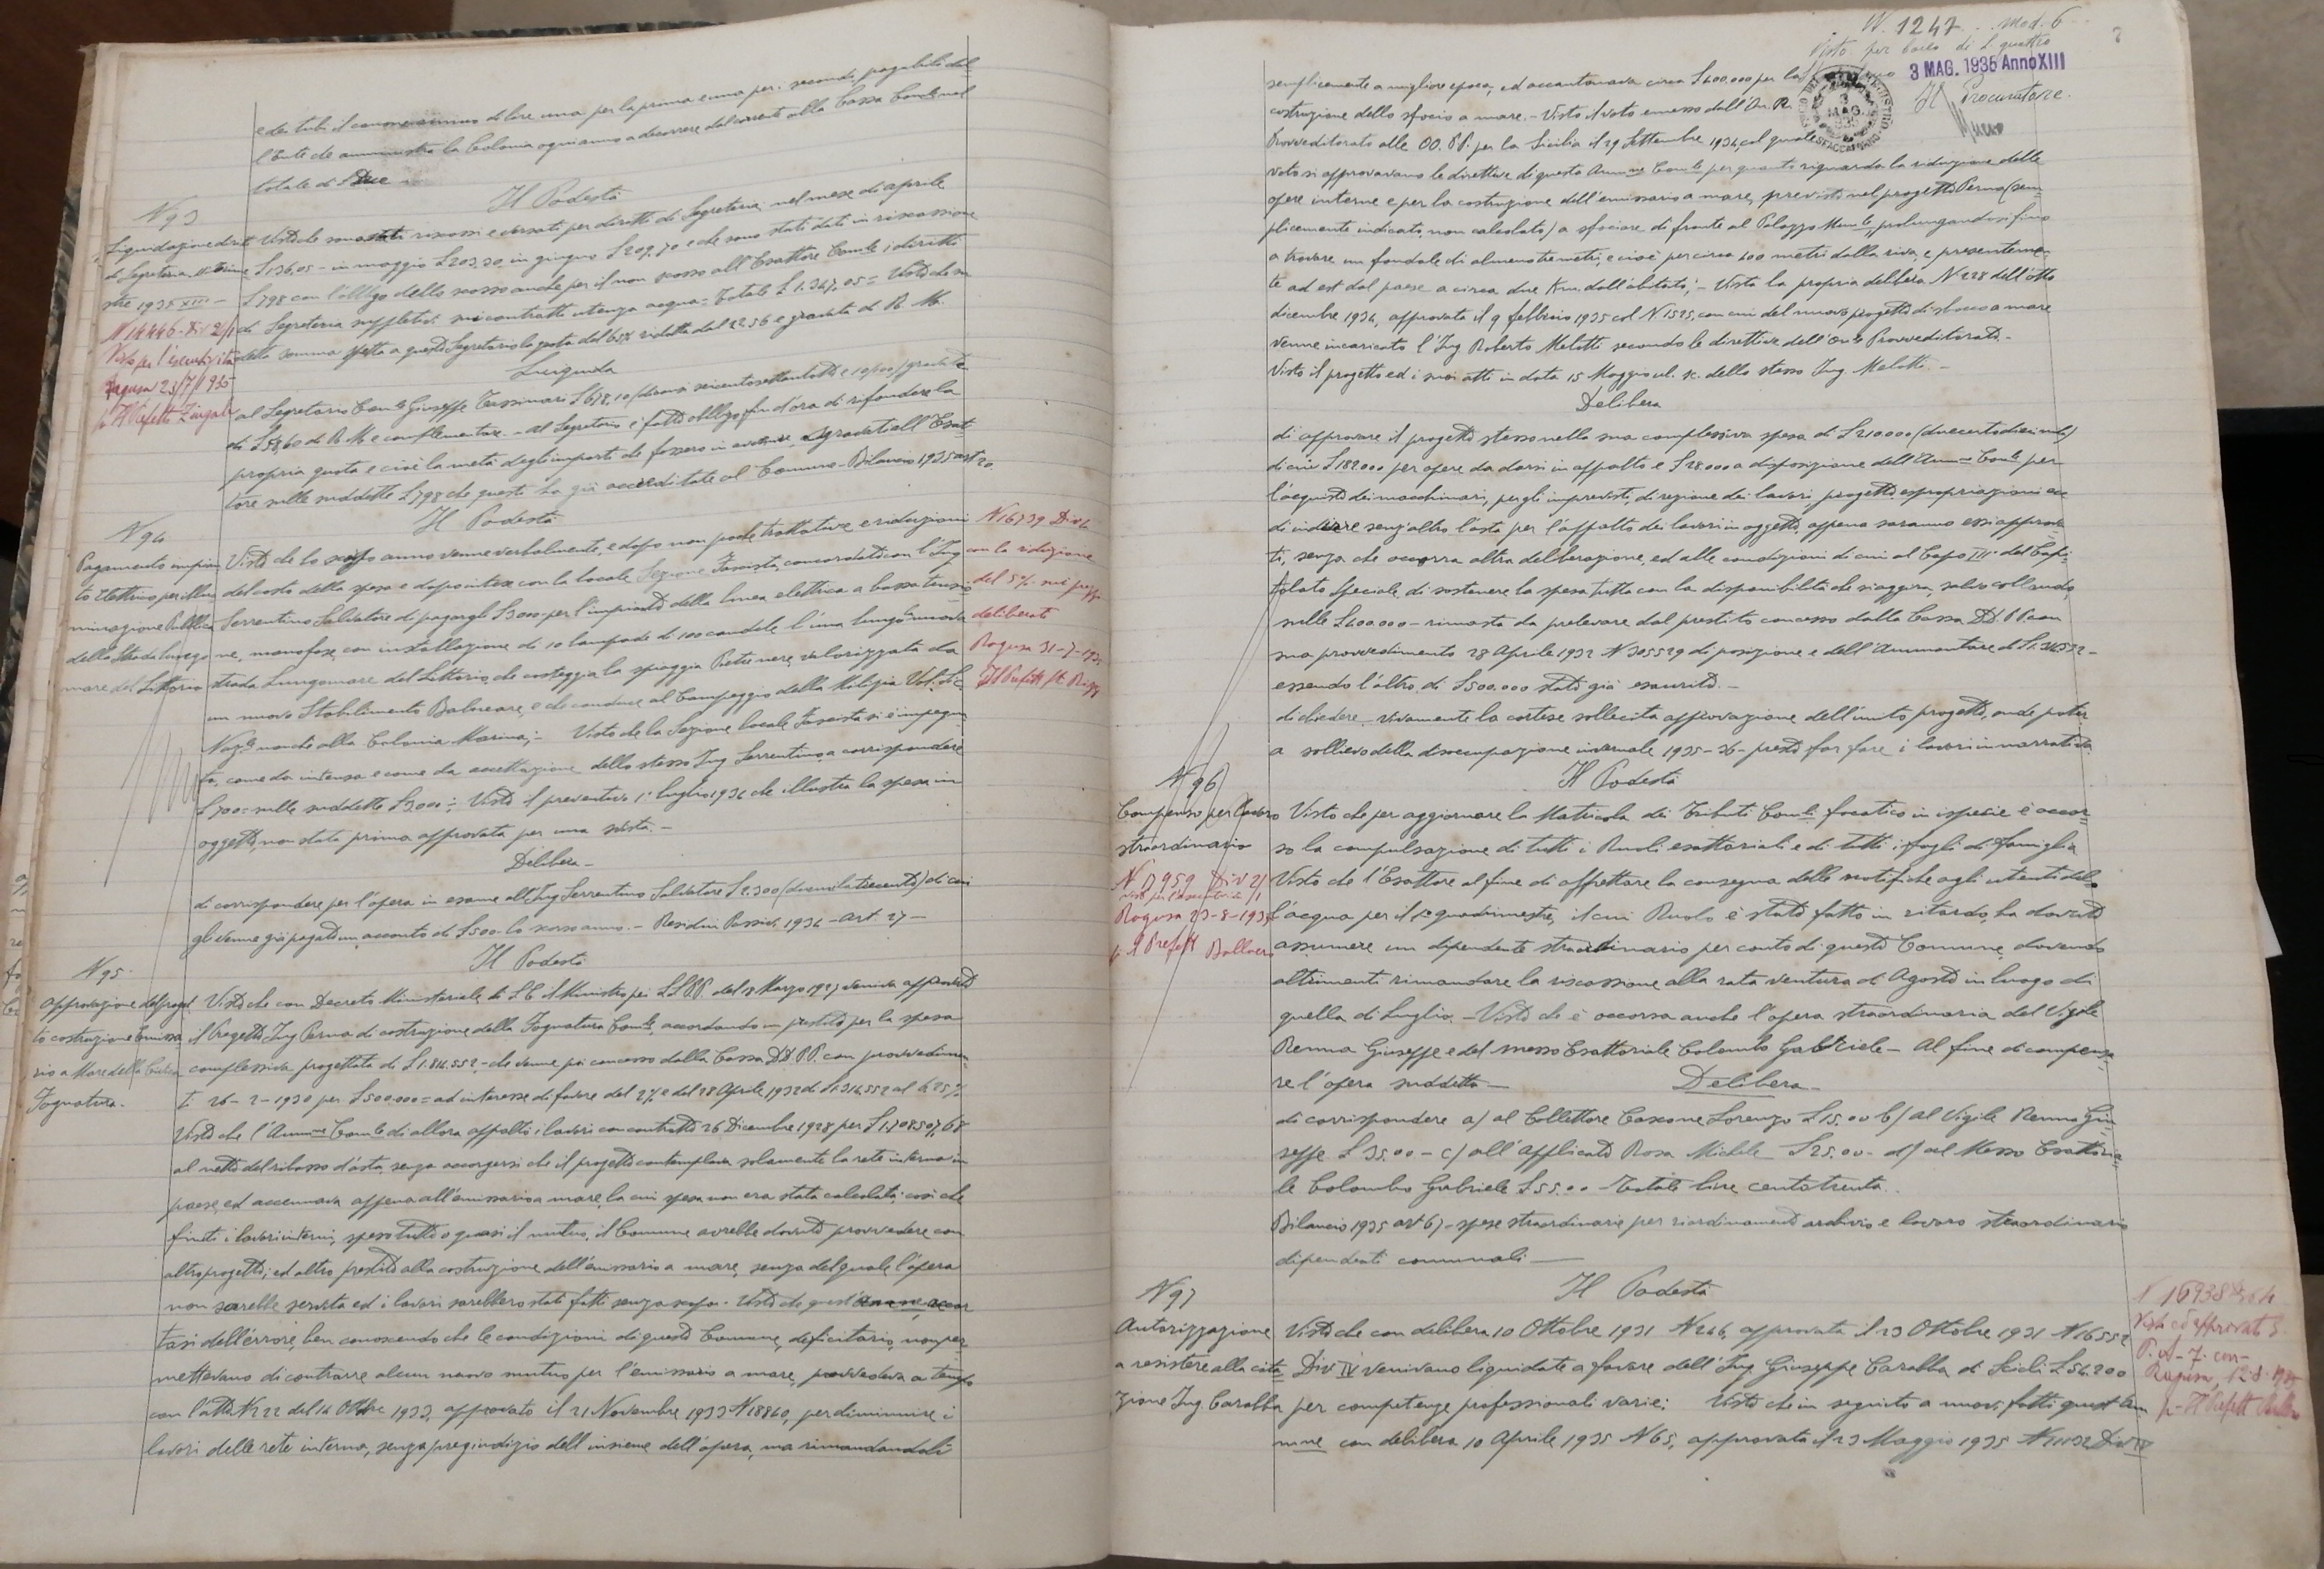 e dei tubi il canone annuo di lire una per la prima e una per la seconda, pagabile dal
l'Ente che amministra la Colonia ogni anno a decorrere dal corrente alla Cassa Com.le nel
totale di £ Due
Il Podestà
N 93
Liquidazione diritti
di Segreteria II° trime
stre 1935 XIII -
N 14446 - Div 2/1
Visto per l'esecutività
Ragusa 23/7/1935
p. Il Prefetto Zingali
Visto che sono stati riscossi e versati per diritti di Segreteria nel mese di aprile
£ 136,05 - in maggio £ 203,30, in giugno £ 209,70 e che sono stati dati in riscossione
£ 798 con l'obbligo dello scosso anche per il non scosso all'Esattore Com.le i diritti
di Segreteria suppletivi sui contratti utenza acqua = Totale £ 1.347,05 = Visto che su
detta somma spetta a questo Segretario la quota del 65% ridotta del 22.56 e gravata di R. M.
Liquida
al Segretario Com.le Giuseppe Tussinari £ 678,10 (diconsi seicentosettantotto e 10/100) gravate
di £ 58,60 di R. M. e complementare. - Al Segretario è fatto obbligo fin d'ora di rifondere la
propria quota e cioè la metà degli importi che fossero in avvenire sgravati all'Esat-
tore sulle suddette £ 798 che questi ha già accreditate al Comune - Bilancio 1935 art 20.
Il Podestà
N 94
Pagamento impian
to Elettrico per illu
minazione Pubblica
della strada Lungo
mare del Littorio
Visto che lo scorso anno venne verbalmente, e dopo non poche trattative e riduzioni
del costo della spesa e dopo intese con la locale Sezione Fascista, concordato con l'Ing
Sorrentino Salvatore di pagargli £ 3000 - per l'impianto della linea elettrica a bassa tensio
ne, monofase, con installazione di 10 lampade di 100 candele l'una lungo la nuova
strada Lungomare del Littorio, che costeggia la spiaggia Pietre nere, valorizzata da
un nuovo Stabilimento Balneare, e che conduce al Campeggio della Milizia Vol. Sic.
Naz.le nonché alla Colonia Marina; - Visto che la Sezione locale Fascista si è impegna
ta, come da intensa e come da accettazione dello stesso Ing Sorrentino a corrispondere
£ 700 = sulle suddette £ 3000 =; Visto il preventivo 1° luglio 1934 che illustra la spesa in
oggetto, non stata prima approvata per una svista. -
N 16739 Div 4
con la riduzione
del 5% sui prezzi
deliberati
Ragusa 31-7-1935
Il Prefetto
Delibera -
di corrispondere per l'opera in esame all'Ing Sorrentino Salvatore £ 2.300 (duemilatrecento) di cui
gli venne già pagato un acconto di £ 500 - lo scorso anno. - Residui Passivi 1934 - art 27 -
Il Podestà
N 95.
Approvazione del proget
to costruzione Emissa
rio a Mare della Civica
Fognatura.
Visto che con Decreto Ministeriale di S.E. il Ministro per i LL.PP. del 12 Marzo 1927 veniva approvato
il Progetto Ing Perna di costruzione della Fognatura Com.le, accordando un prestito per la spesa
complessiva progettata di £ 1.814.552, - che venne poi concesso dalla Cassa DD. PP. con provvedimen
ti 26 - 2 - 1930 per £ 500.000 = ad interesse di favore del 2% e del 28 Aprile 1932 di £ 1.314.552 al 4.25%
Visto che l'Amm.ne Com.le di allora appaltò i lavori con contratto 26 Dicembre 1928 per £ 1.708.507,68
al netto del ribasso d'asta, senza accorgersi che il progetto contemplava solamente la rete interna in
paese, ed accennava appena all'emissario a mare, la cui spesa non era stata calcolata; così che
finiti i lavori interni, speso tutto o quasi il mutuo, il Comune avrebbe dovuto provvedere con
altro progetto; ed altro prestito alla costruzione dell'emissario a mare, senza del quale l'opera
non sarebbe servita ed i lavori sarebbero stati fatti senza scopo. Visto che quest'Amm.ne accor
tasi dell'errore, ben conoscendo che le condizioni di questo Comune, deficitario, non per
mettevano di contrarre alcun nuovo mutuo per l'emissario a mare, provvedeva a tempo
con l'atto N 22 del 14 Ottobre 1933, approvato il 21 Novembre 1933 N 18840, per diminuire i
lavori della rete interna, senza pregiudizio dell'insieme dell'opera, ma rimandandoli
N. 1247 mod. 6
Visto per bollo di £ quattro
3 MAG. 1935 Anno XIII
Il Procuratore
semplicemente a migliore epoca, ed accantonava circa £ 400.000 per la
costruzione dello sfocio a mare. - Visto il voto emesso dall'On. R.
Provveditorato alle OO. PP. per la Sicilia il 29 Settembre 1934, col quale
voto si approvavano le direttive di questa Amm.ne Com.le per quanto riguarda la riduzione delle
opere interne e per la costruzione dell'emissario a mare, previsto nel progetto Perna (sem
plicemente indicato, non calcolato) a sfociare di fronte al Palazzo Mun.le, prolungandosi fino
a trovare un fondale di almeno tre metri, e cioè per circa 400 metri dalla riva, e presenteme
te ad est del paese a circa due Km. dall'abitato; - Vista la propria delibera N 228 dell'otto
dicembre 1934, approvata il 9 febbraio 1935 col N 1525, con cui del nuovo progetto di sbocco a mare
venne incaricato l'Ing Roberto Melotti secondo le direttive dell'On.le Provveditorato. -
Visto il progetto ed i suoi atti in data 15 Maggio u. s. dello stesso Ing. Melotti. -
Delibera
di approvare il progetto stesso nella sua complessiva spesa di £ 210000 (duecentodiecimila)
di cui £ 182000 per opere da darsi in appalto e £ 28000 a disposizione dell'Amm.ne Com.le per
l'acquisto dei macchinari, per gli imprevisti, direzione dei lavori, progetto, espropriazioni ecc
di indire senz'altro l'asta per l'appalto dei lavori in oggetto, appena saranno essi approva
ti, senza che occorra altra deliberazione, ed alle condizioni di cui al Capo III° del Capi-
tolato speciale, di sostenere la spesa tutta con la disponibilità che si aggira, salvo collaudo,
sulle £ 400.000 - rimasta da prelevare dal prestito concesso dalla Cassa DD. PP. con
suo provvedimento 28 Aprile 1932 N 305529 di posizione e dell'ammontare di £ 1.314552 -
essendo l'altro di £ 500.000 stato già esaurito. -
di chiedere vivamente la cortese sollecita approvazione dell'unito progetto, onde poter
a sollievo della disoccupazione invernale 1935 - 36 - presto far fare i lavori in narrativa
Il Podestà
N 96
Compenso per lavoro
straordinario
N 17959 Div 2/1
Visto per l'esecutività
Ragusa 23-8-1935
p. Il Prefetto
Visto che per aggiornare la Matricola dei Tributi Com.li focatico in ispecie è occor
so la compulsazione di tutti i Ruoli esattoriali e di tutti i fogli di famiglia
Visto che l'Esattore al fine di affrettare la consegna delle notifiche agli utenti del
l'acqua per il 2° quadrimestre, il cui Ruolo è stato fatto in ritardo, ha dovuto
assumere un dipendente straordinario per conto di questo Comune, dovendo
altrimenti rimandare la riscossione alla rata ventura di Agosto in luogo di
quella di Luglio. - Visto che è occorsa anche l'opera straordinaria del Vigile
Renna Giuseppe e del messo Esattoriale Colombo Gabriele - Al fine di compensa
re l'opera suddetta - Delibera -
di corrispondere a) al Collettore Cascone Lorenzo £ 15.00 b) al Vigile Renna Giu
seppe £ 35.00 - c) all'Applicato Rosa Michele £ 25.00 - d) al Messo Esattoria
le Colombo Gabriele £ 55.00 - Totale lire centotrenta.
Bilancio 1935 art 67 - spese straordinarie per riordinamento archivio e lavoro straordinario
dipendenti comunali -
Il Podestà
N 97
Autorizzazione
a resistere alla cita
zione Ing Carabba
Visto che con delibera 10 Ottobre 1931 N 246, approvata il 23 Ottobre 1931 N 16552
Div IV venivano liquidate a favore dell'Ing Giuseppe Carabba di Scicli £ 54.200
per competenze professionali varie; Visto che in seguito a nuovi fatti quest'Am
m.ne con delibera 10 Aprile 1935 N 65, approvata il 23 Maggio 1935 N 11032 Div IV
N 16938 Div 4
Visto ed approvato
Ragusa, 12-8-1935
p. Il Prefetto